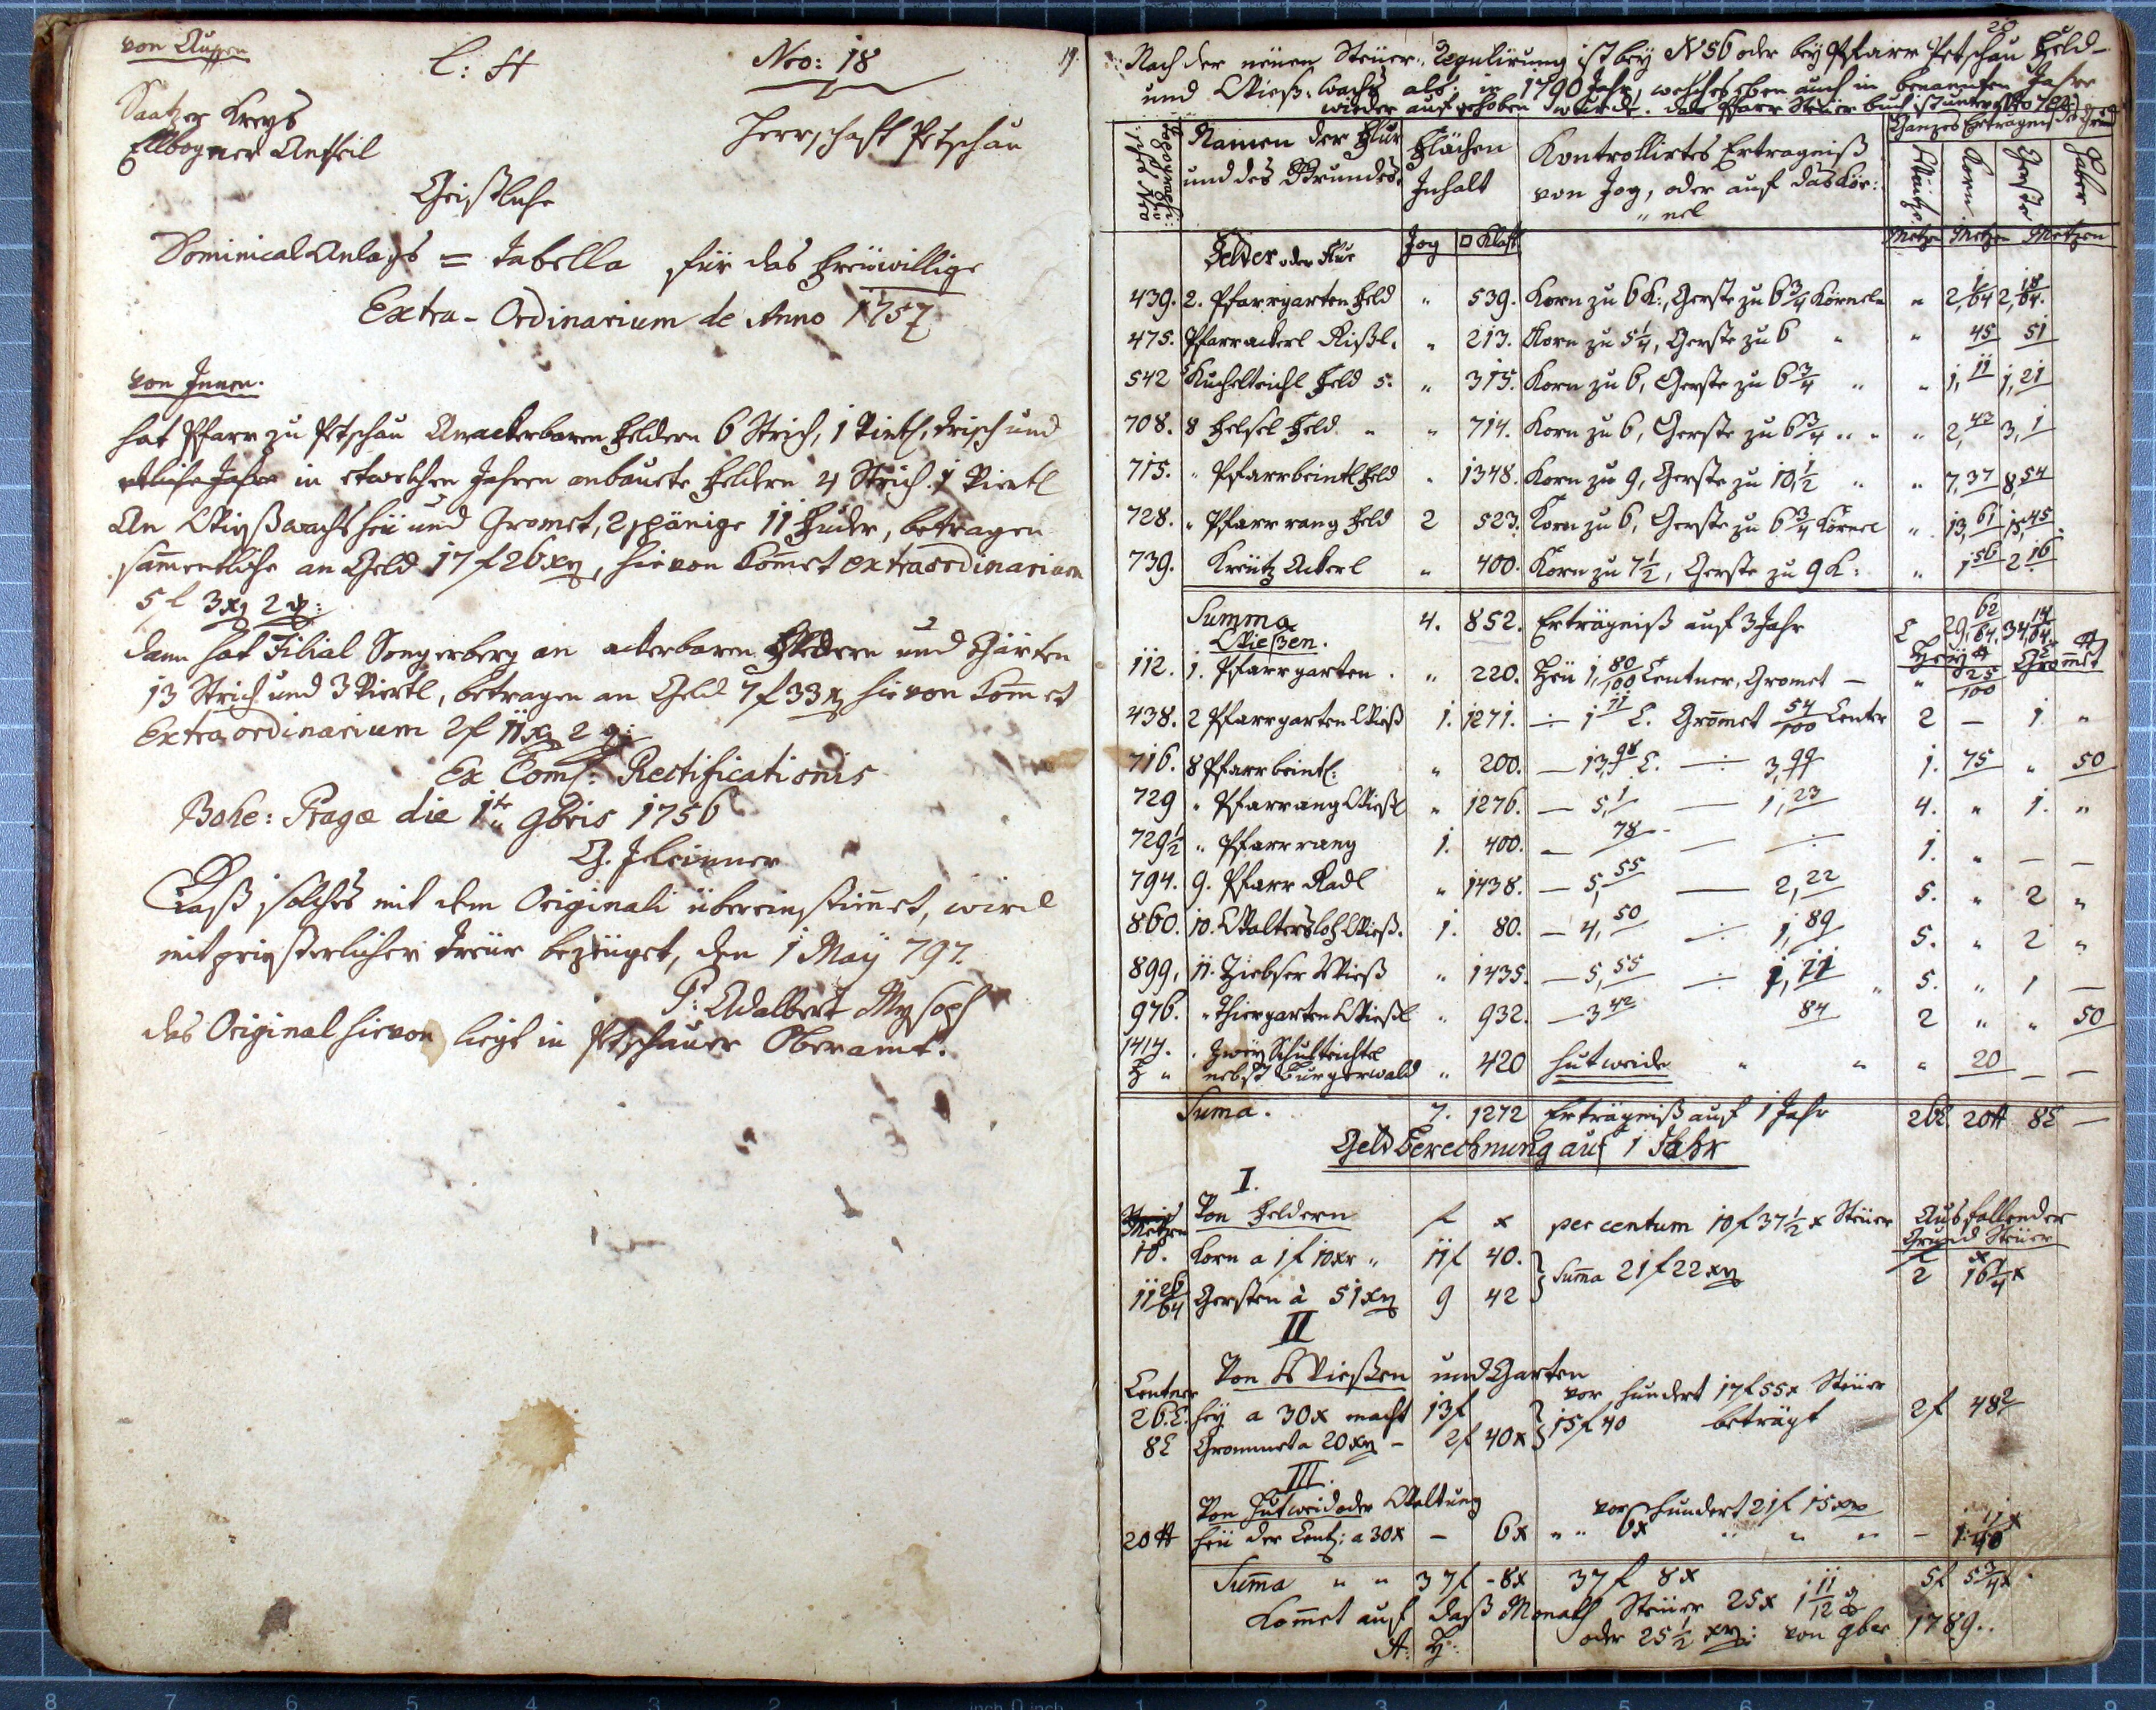 von Außen
C: H Nro: 18 19.
Saatzer Kreys
Ellbogner Antheil
Herrschaft Petschau
Geistliche
Dominical Anlags = Tabella für das freüwillige
Extra-Ordinarium de Anno 1757
von Innen.
hat Pfarr zu Petschau An ackerbaren Feldern 6 Strich, 1 Viertl, Trisch und
etliche Jahre in etwelchen Jahren anbauete Feldern 4 Strich 1 Viertl
An Wießwachs heü und Gromet, 2spänige 11 Fuder, betragen
sam̄entliche an Geld 17 f 26 xr, hievon kom̄et extraordinarium
5 f 3 xr 2 d:
dann hat Filial Songerberg an ackerbaren Feldern und Gärten
13 Strich und 3 Viertl, betragen an Geld 7 f 33 x hievon kom̄et
Extraordinarium 2 f 11 xr 2 d:
Ex Com̄: Rectificationis
Bohe: Pragæ die 1te 9bris 1756
Daß solches mit dem Originali übereinstim̄et, wird
mit priesterlicher Treüe bezeüget, den 1 Maÿ 797.
P: Adalbert
das Original hievon liegt in Petschauer Oberamt.
20
Nach der neüen Steüer-Regulirung ist beÿ N 56 oder beÿ Pfarr Petschau Feld-
und Wieß-wachs als: in 1790 Jahr, welches eben auch in benannten Jahre
wieder aufgehoben wurde. das Pfarr Steüer buch ist unter Nro 722
Ganzes Erträgniß
Namen der Flur und des Grundes. Flächen Inhalt Kontrollirtes Erträgniß von Jog, oder auf das Kör: Waitz Korn Gerste Haber
nel
Felder oder Flur Jog □ Klaft Metzen Metzen Metzen
439. 2. Pfarrgarten Feld " 539. Korn zu 6 K:, Gerste zu 6 3/4 Körneln " 2, 1/64 2, 18/64.
475. Pfarrackerl Rißl. " 213. Korn zu 5 1/4, Gerste zu 6 " " 45 51
542 Kuchelteichl Feld 5. " 315. Korn zu 6, Gerste zu 6 3/4 " " 1, 11 1, 21
708. 8 Helsel Feld " " 714. Korn zu 6, Gerste zu 6 3/4 " " " 2, 43 3, 1
715. " Pfarrbeintl Feld " 1348. Korn zu 9, Gerste zu 10 1/2 " " 7, 37 8, 54
728. " Pfarrrang Feld 2 523. Korn zu 6, Gerste zu 6 3/4 Körnel " 13, 61 15, 45
739. Kreütz Ackerl " 400. Korn zu 7 1/2, Gerste zu 9 K: " 1 56 2 16
Summa 4. 852. Erträgniß auf 3 Jahr 29, 62/64. 34 14/64
Wießen. Heÿ Grom̄et
112. 1. Pfarrgarten . " 220. Heü 1, 80/100 Centner, Gromet — " 25/100
438. 2 Pfarrgarten Wieß 1. 1271. ÷ 1 71 C. Grom̄et 54/100 Centr 2 — 1. "
716. 8 Pfarrbeintl: " 200. — 13, 98 C. ÷ 3, 99 1. 75 " 50
729 " Pfarrrang Wießl " 1276. — 5, 1 — 1, 23 4. " 1. "
729 1/2 " Pfarrrang 1. 400. — 78 — ÷ 1. " — —
794. 9. Pfarr Radl " 1438. — 5, 55 — 2, 22 5. " 2 "
860. 10. Waltersloh Wieß. 1. 80. — 4, 50 ÷ 1, 89 5. " 2 "
899, 11. Ziebser Wieß " 1435. — 5, 55 ÷ 1, 11 5. " 1 —
976. " Thiergarten Wießl " 932. — 3 42 84 2 " " 50
1414. " Zweÿ Schulteichtl
nebst Burgerwald " 420 Hutweide " " " 20 — —
Suma. 7. 1272 Erträgniß auf 1 Jahr 26 C 20 ℔ 8 C —
Geld Berechnung auf 1 Jahr
I.
Metzen Von Feldern f x per centum 10 f 37 1/2 x Steüer Ausfallender
Grund Steüer
10. Korn a 1 f 10 xr " 11 f 40. f x
Sum̄a 21 f 22 xr 2 16 1/4 x
11 26/64 Gersten à 51 xr 9 42
II
Von Wießen und Garten
Centner vor hundert 17 f 55 x Steüer
26. C. heÿ a 30 x macht 13 f 15 f 40 beträgt 2 f 48 2
8 C Grommet a 20 xr – 2 f 40 x
III.
Von Hutweid oder Waltung vor hundert 21 f 15 xr
20 ℔ heü der Cent: a 30 x – 6 x " " 6 x " " " –
Sum̄a " " 37 f - 8 x 37 f 8 x 5 f 5 3/4 x
Kom̄et auf daß Monath Steüer 25 x 1 11/12 d
oder 25 1/2 xr: von 9ber 1789..